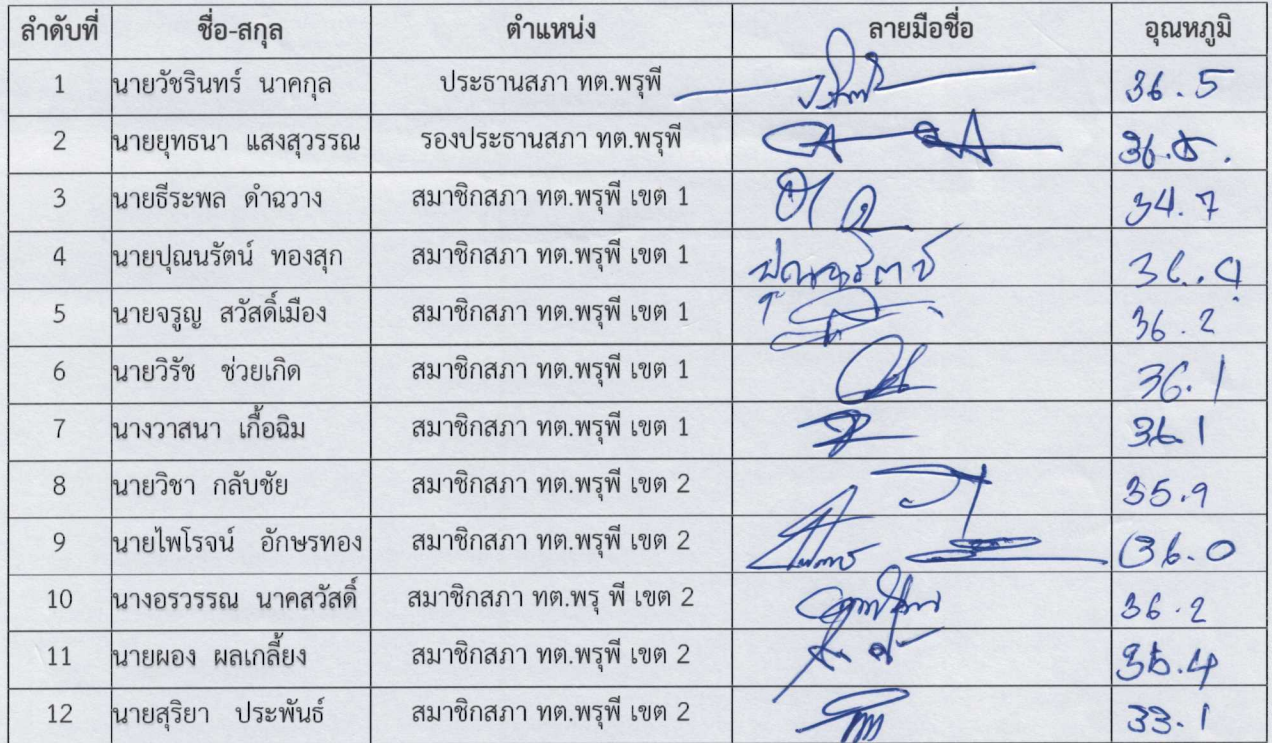 ลำดับที่ ชื่อ-สกุล ตำแหน่ง ลายมือชื่อ อุณหภูมิ
1 นายวัชรินทร์ นาคกุล ประธานสภา ทต.พรุพี 36.5
2 นายยุทธนา แสงสุวรรณ รองประธานสภา ทต.พรุพี
3 นายธีระพล ดำฉวาง สมาชิกสภา ทต.พรุพี เขต 1 34.7
4 นายปุณนรัตน์ ทองสุก สมาชิกสภา ทต.พรุพี เขต 1 ปุณนรัตน์
5 นายจรูญ สวัสดิ์เมือง สมาชิกสภา ทต.พรุพี เขต 1 36.2
6 นายวิรัช ช่วยเกิด สมาชิกสภา ทต.พรุพี เขต 1 36.1
7 นางวาสนา เกื้อฉิม สมาชิกสภา ทต.พรุพี เขต 1 36.1
8 นายวิชา กลับชัย สมาชิกสภา ทต.พรุพี เขต 2 35.9
9 นายไพโรจน์ อักษรทอง สมาชิกสภา ทต.พรุพี เขต 2 36.0
10 นางอรวรรณ นาคสวัสดิ์ สมาชิกสภา ทต.พรุ พี เขต 2 36.2
11 นายผอง ผลเกลี้ยง สมาชิกสภา ทต.พรุพี เขต 2
12 นายสุริยา ประพันธ์ สมาชิกสภา ทต.พรุพี เขต 2 33.1